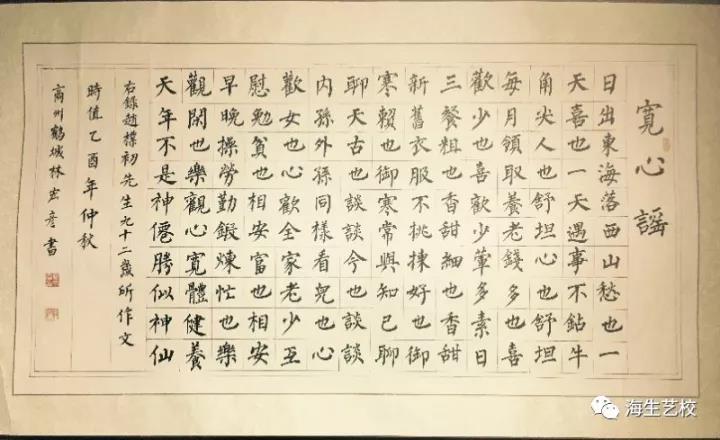 寬心謠
日出東海落西山愁也一
天喜也一天遇事不鉆牛
角尖人也舒坦心也舒坦
每月領取養老錢多也喜
歡少也喜歡少葷多素日
三餐粗也香甜細也香甜
新舊衣服不挑揀好也御
寒賴也御寒常與知己聊
聊天古也談談今也談談
内孫外孫同樣看兒也心
歡女也心歡全家老少互
慰勉貧也相安富也相安
早晚操勞勤鍛煉忙也樂
觀閑也樂觀心寬體健養
天年不是神僊勝似神仙
右錄趙樸初先生九十二歲所作文
時值乙酉年仲秋
商州鶴城林宏彥書
海生艺校